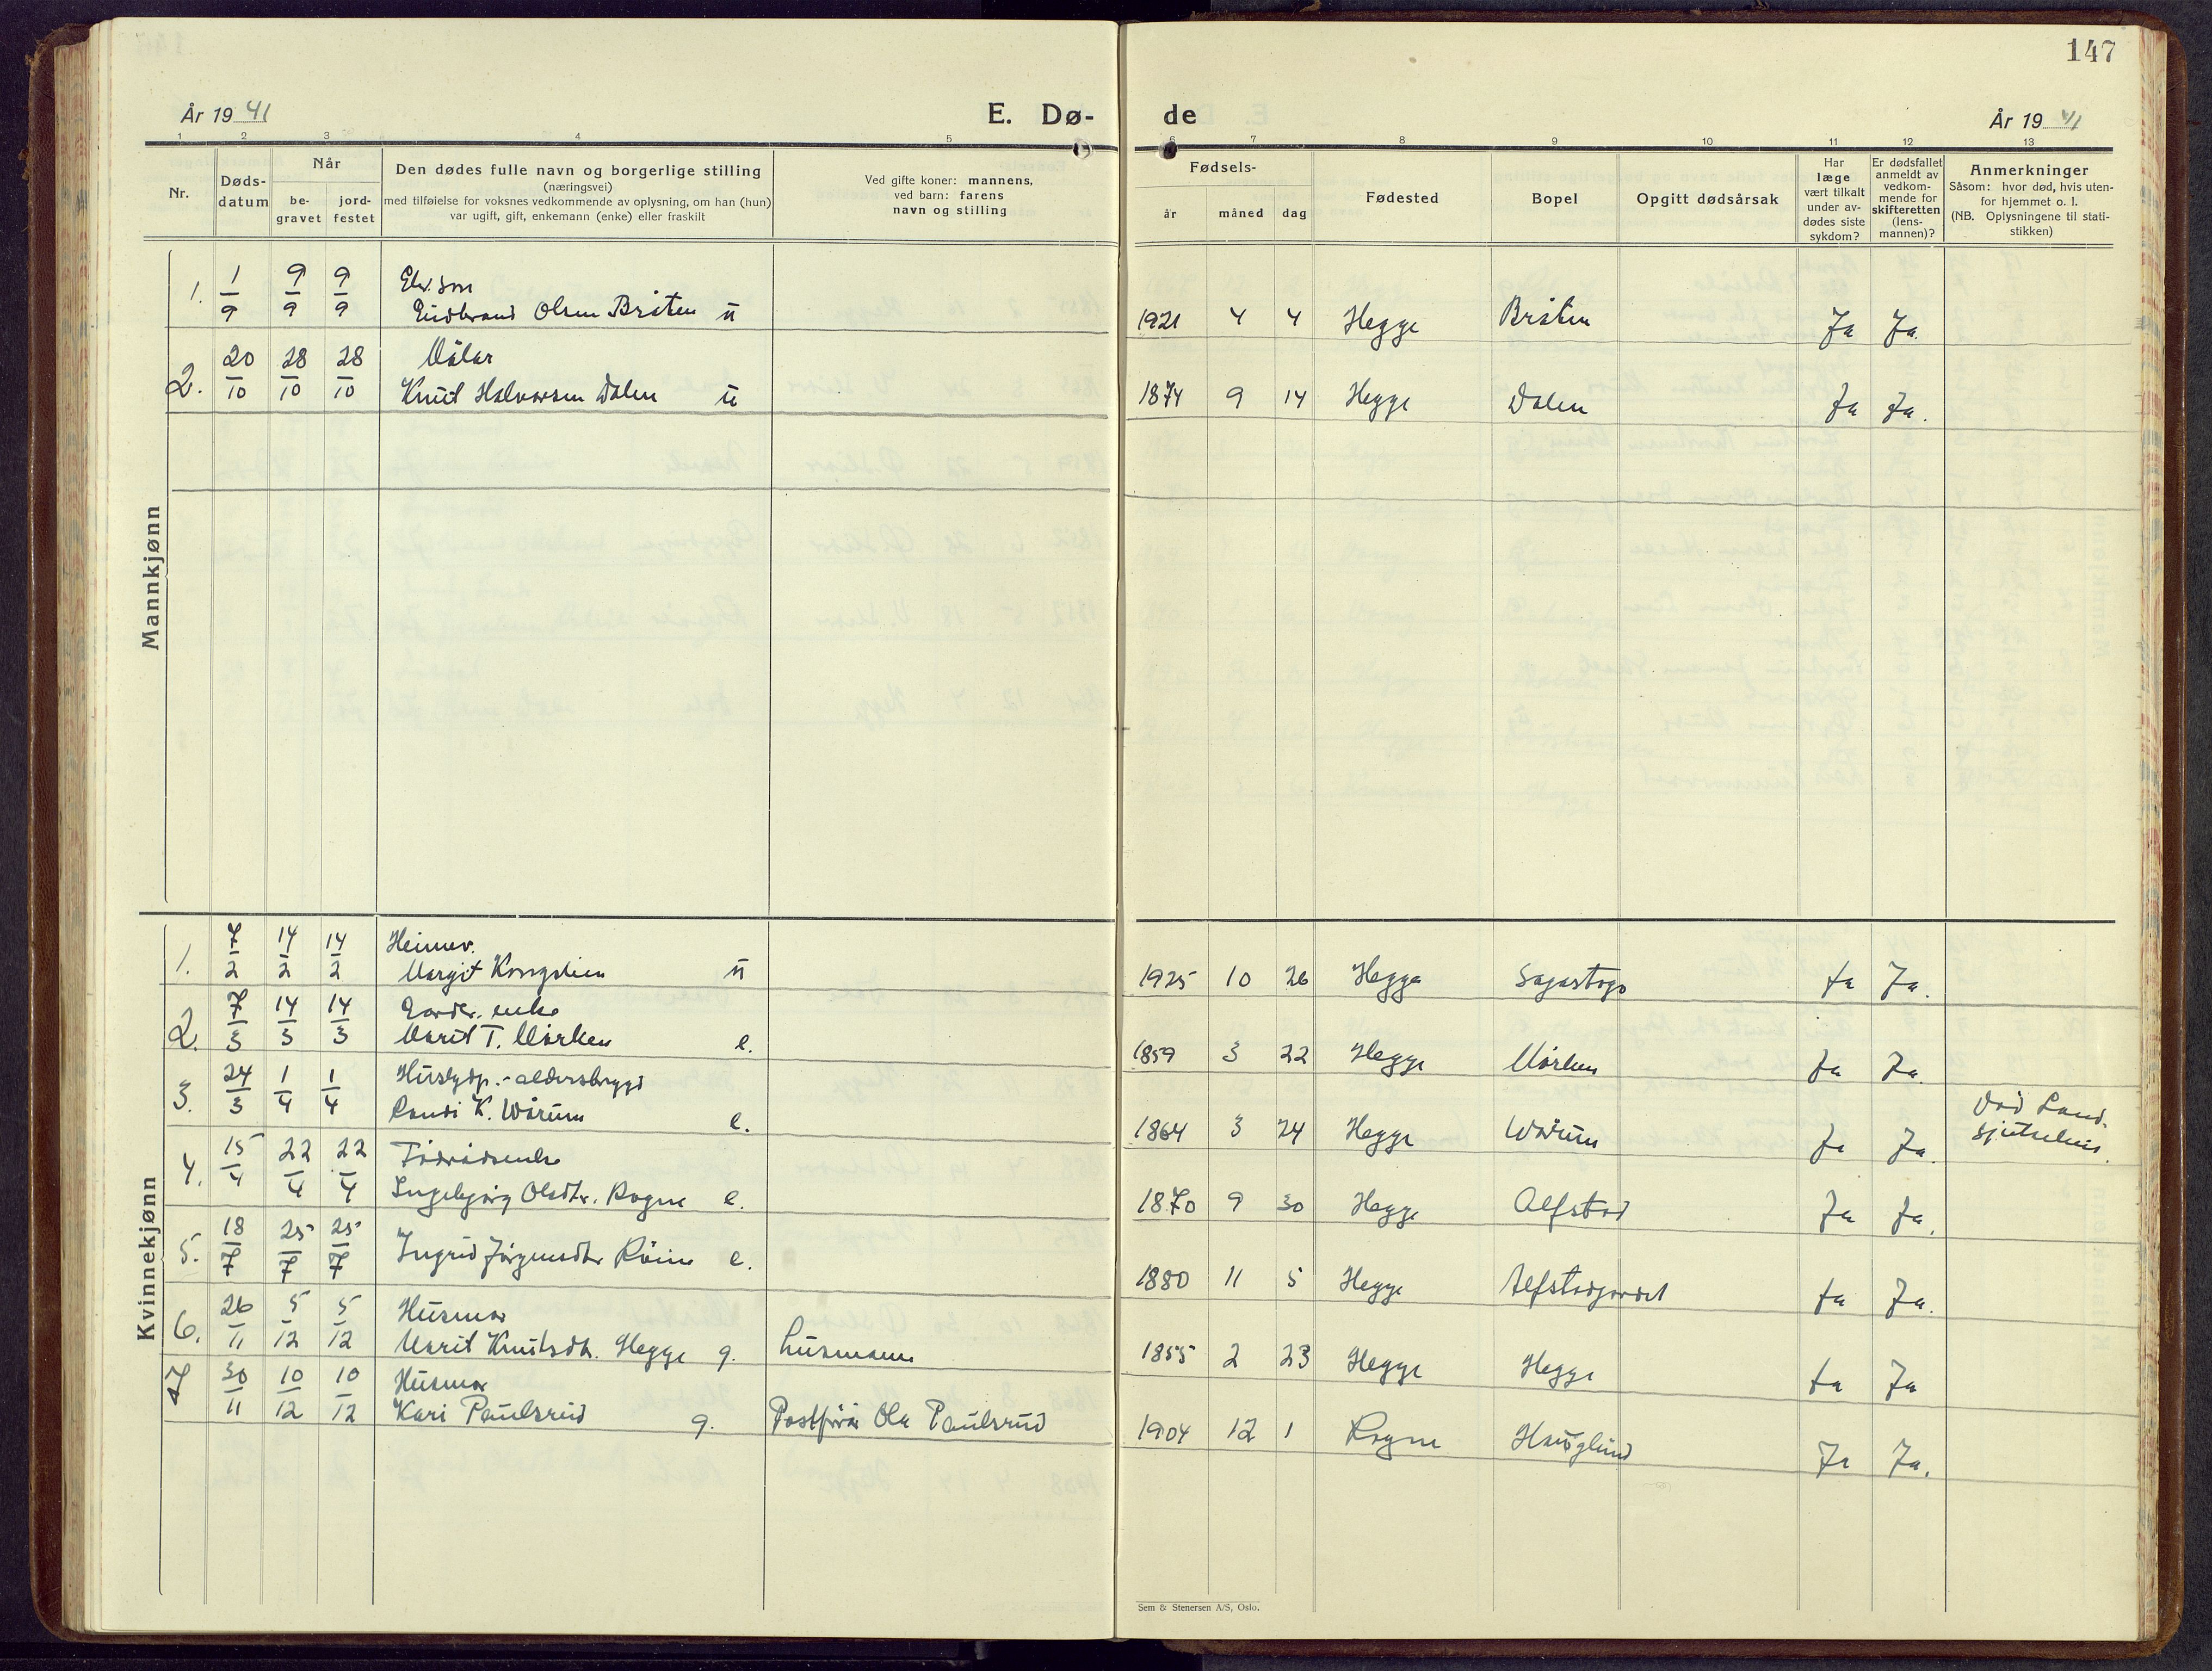 147
År 1941
E. Dø-
de
År 1941
1 2 3 4 5 6 7 8 9 10 11 12 13
Nr.
Døds-
datum
Når
be-
gravet
jord-
festet
Den dødes fulle navn og borgerlige stilling
(næringsvei)
med tilføielse for voksnes vedkommende av oplysning, om han (hun)
var ugift, gift, enkemann (enke) eller fraskilt
Ved gifte koner: mannens,
ved barn: farens
navn og stilling
Fødsels-
år måned dag
Fødested
Bopel
Opgitt dødsårsak
Har
læge
vært tilkalt
under av-
dødes siste
sykdom?
Er dødsfallet
anmeldt av
vedkom-
mende for
skifteretten
(lens-
mannen)?
Anmerkninger
Såsom: hvor død, hvis uten-
for hjemmet o. l.
(NB. Oplysningene til stati-
stikken)
Mannkjønn
1. 1/9 9/9 9/9 son
Gudbrand Olsen Bråten u 1921 4 4 Hegge Bråten Ja Ja.
2. 20/10 28/10 28/10 Målar
Knut Halvorsen Dalen u 1874 9 14 Hegge Dalen Ja Ja.
Kvinnekjønn
1. 7/2 14/2 14/2 Heimev.
Margit Kongslien u 1925 10 26 Hegge Sagastogo Ja Ja.
2. 7/3 14/3 14/3 Gardbr. enke
Marit T. Mørken e. 1859 3 22 Hegge Mørken Ja Ja.
3. 24/3 1/4 1/4 alderstrygd
Randi K. Wårum e. 1864 3 24 Hegge Wårum Ja Ja. Död Land.
sjukehus.
4. 15/4 22/4 22/4 Föderådsenke
Ingebjørg Olsdtr. Rogne e. 1870 9 30 Hegge Alfstad Ja Ja.
5. 18/7 25/7 25/7 Ingrid Jörgensdtr Röine e. 1880 11 5 Hegge Alfstadgardet Ja Ja.
6. 26/11 5/12 5/12 Husmor
Marit Knutsdtr. Hegge g. Lusmann 1855 2 23 Hegge Hegge Ja Ja
7 30/11 10/12 10/12 Husmor
Kari Paulsrud g. Postförar Ola Paulsrud 1904 12 1 Rogne Hauglund Ja Ja.
Sem & Stenersen A/S, Oslo.